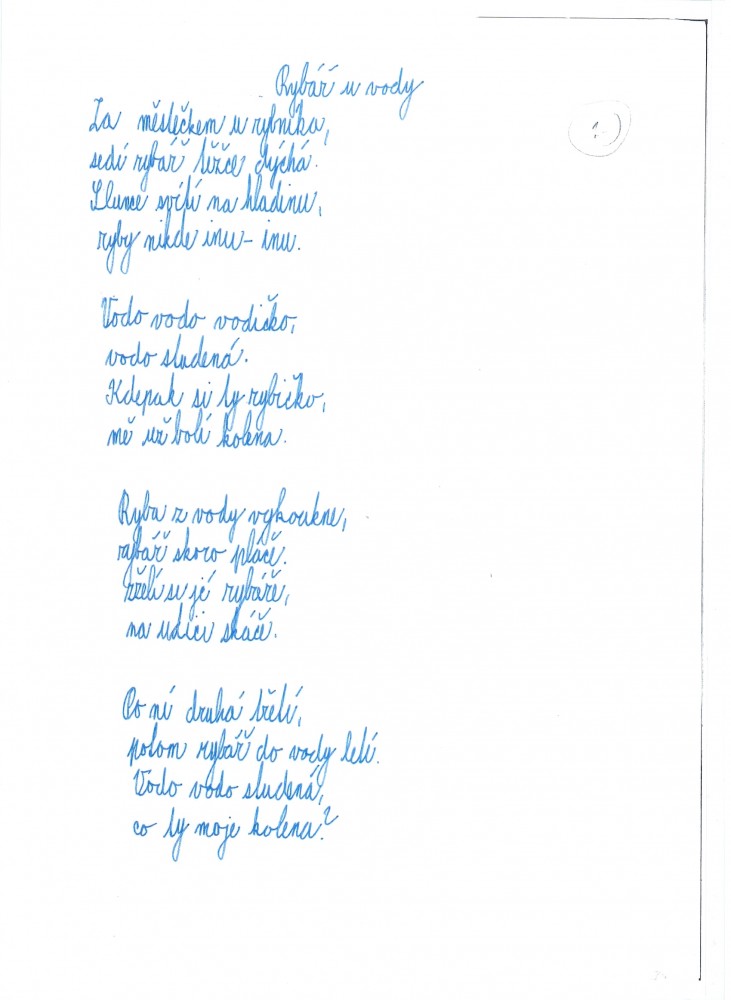 Rybář u vody
1.
Za městečkem u rybníka,
sedí rybář těžce dýchá.
Slunce svítí na hladinu,
ryby nikde inu - inu.
Vodo vodo vodičko,
vodo studená.
Kdepak si ty rybičko,
mě už bolí kolena.
Ryba z vody vykoukne,
rybář skoro pláče.
Zželí se jí rybáře,
na udici skáče.
Po ní druhá třetí,
potom rybář do vody letí.
Vodo vodo studená,
co ty moje kolena?